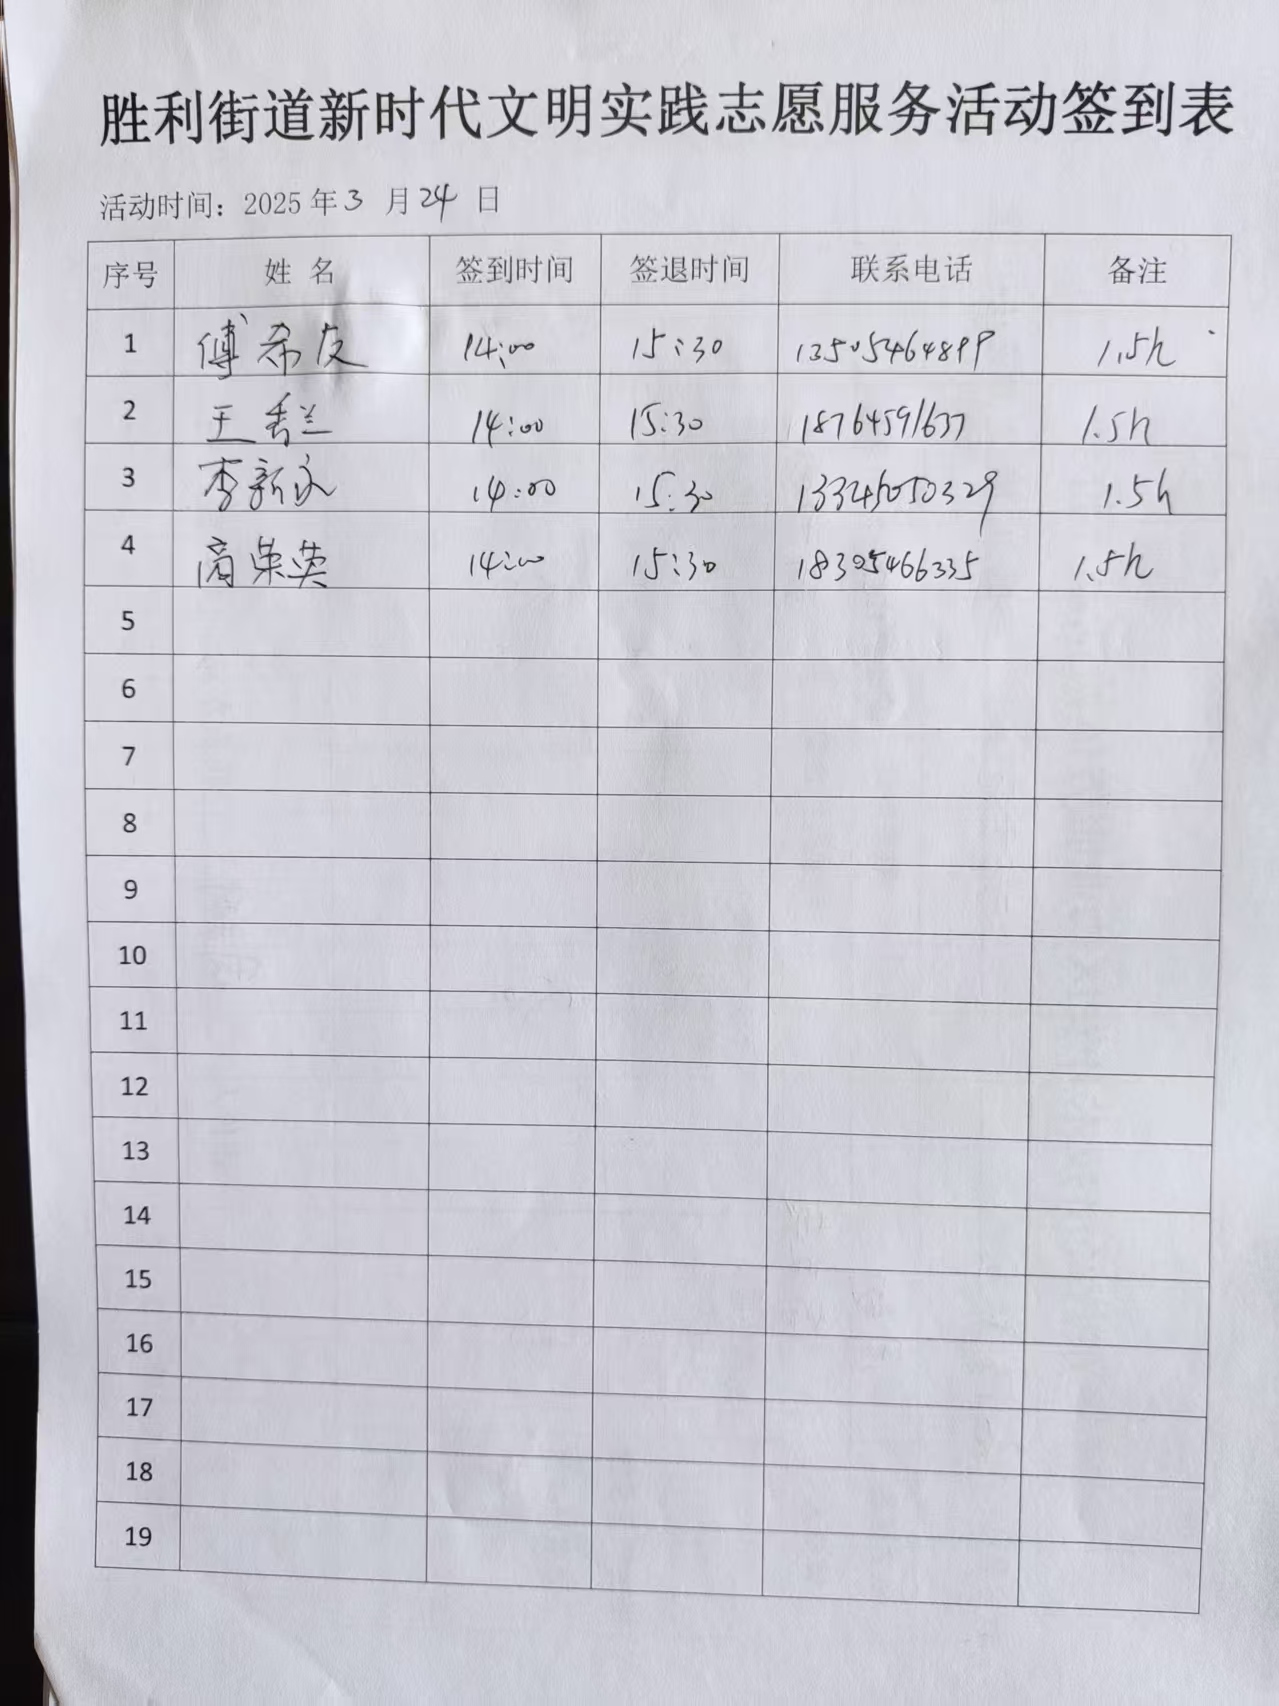 胜利街道新时代文明实践志愿服务活动签到表
活动时间：2025年3月24日
序号 姓名 签到时间 签退时间 联系电话 备注
1 傅希友 14:00 15:30 13505464899 1.5h
2 王秀兰 14:00 15:30 18764591637 1.5h
3 李新永 14:00 15:30 13345050329 1.5h
4 商荣英 14:00 15:30 18305466335 1.5h
5
6
7
8
9
10
11
12
13
14
15
16
17
18
19